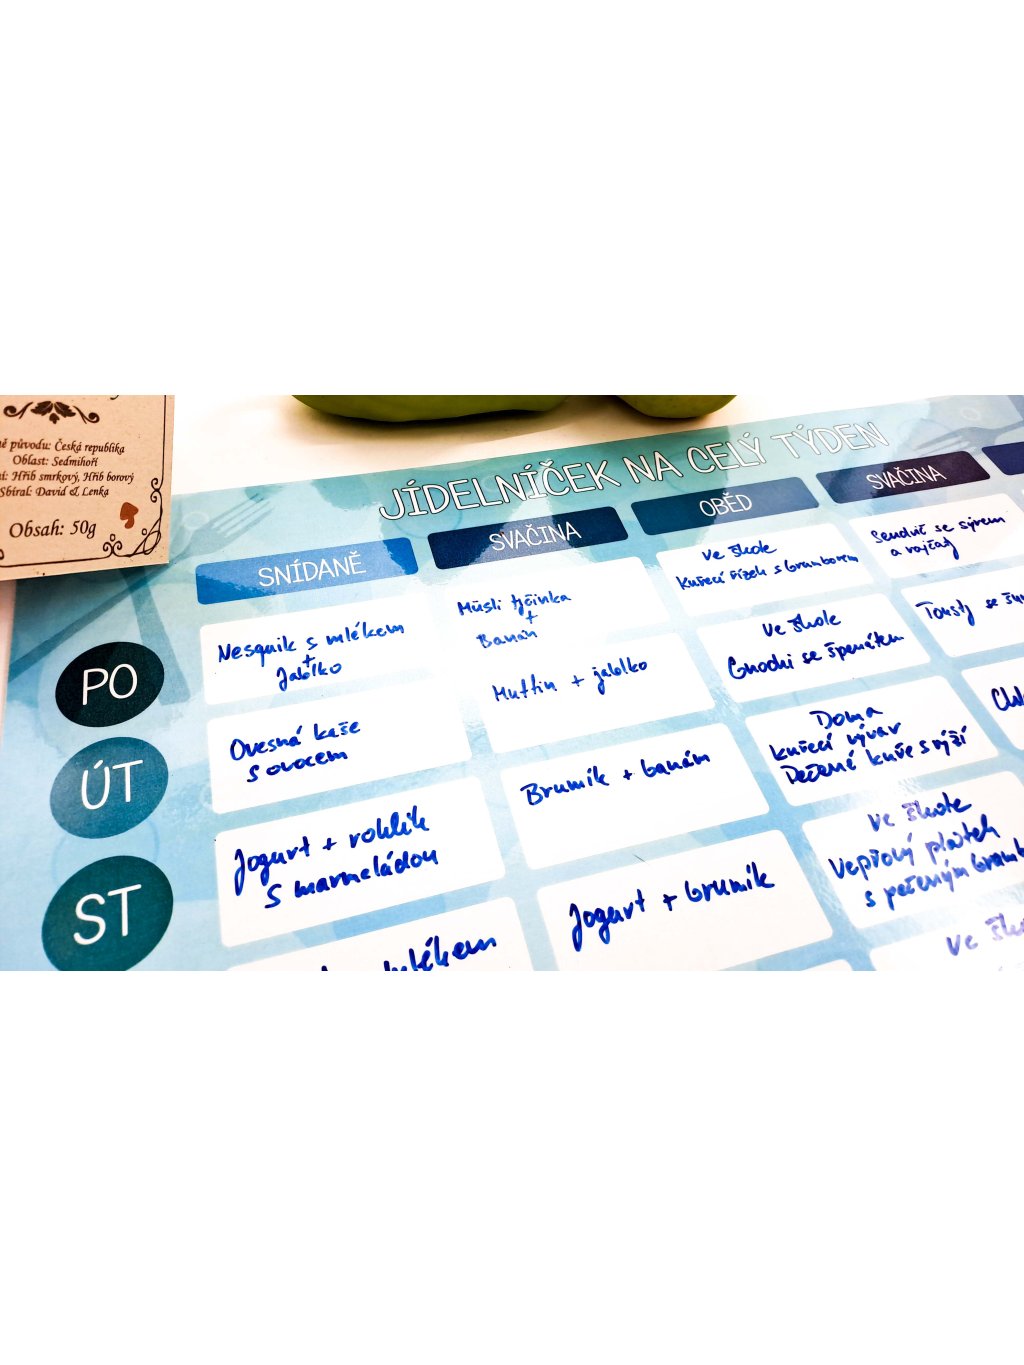 ě původu: Česká republika
Oblast: Sedmihoří
í: Hřib smrkový, Hřib borový
Sbíral: David & Lenka
Obsah: 50g
JÍDELNÍČEK NA CELÝ TÝDEN
SNÍDANĚ
SVAČINA
OBĚD
SVAČINA
PO
Nesquik s mlékem
+
Jablko
Müsli tyčinka
+
Banán
Ve škole
Kuřecí řízek s bramborem
Sendvič se sýrem
a rajčaty
ÚT
Ovesná kaše
s ovocem
Muffin + jablko
Ve škole
Gnochi se špenátem
Tousty se
ST
Jogurt + rohlík
s marmeládou
Brumík + banán
Doma
kuřecí vývar
Pečené kuře s rýží
mlékem
Jogurt + brumík
Ve škole
Vepřový plátek
s pečeným
Ve